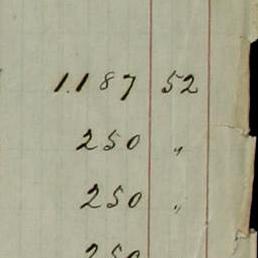 1.187 52
250 "
250 "
250